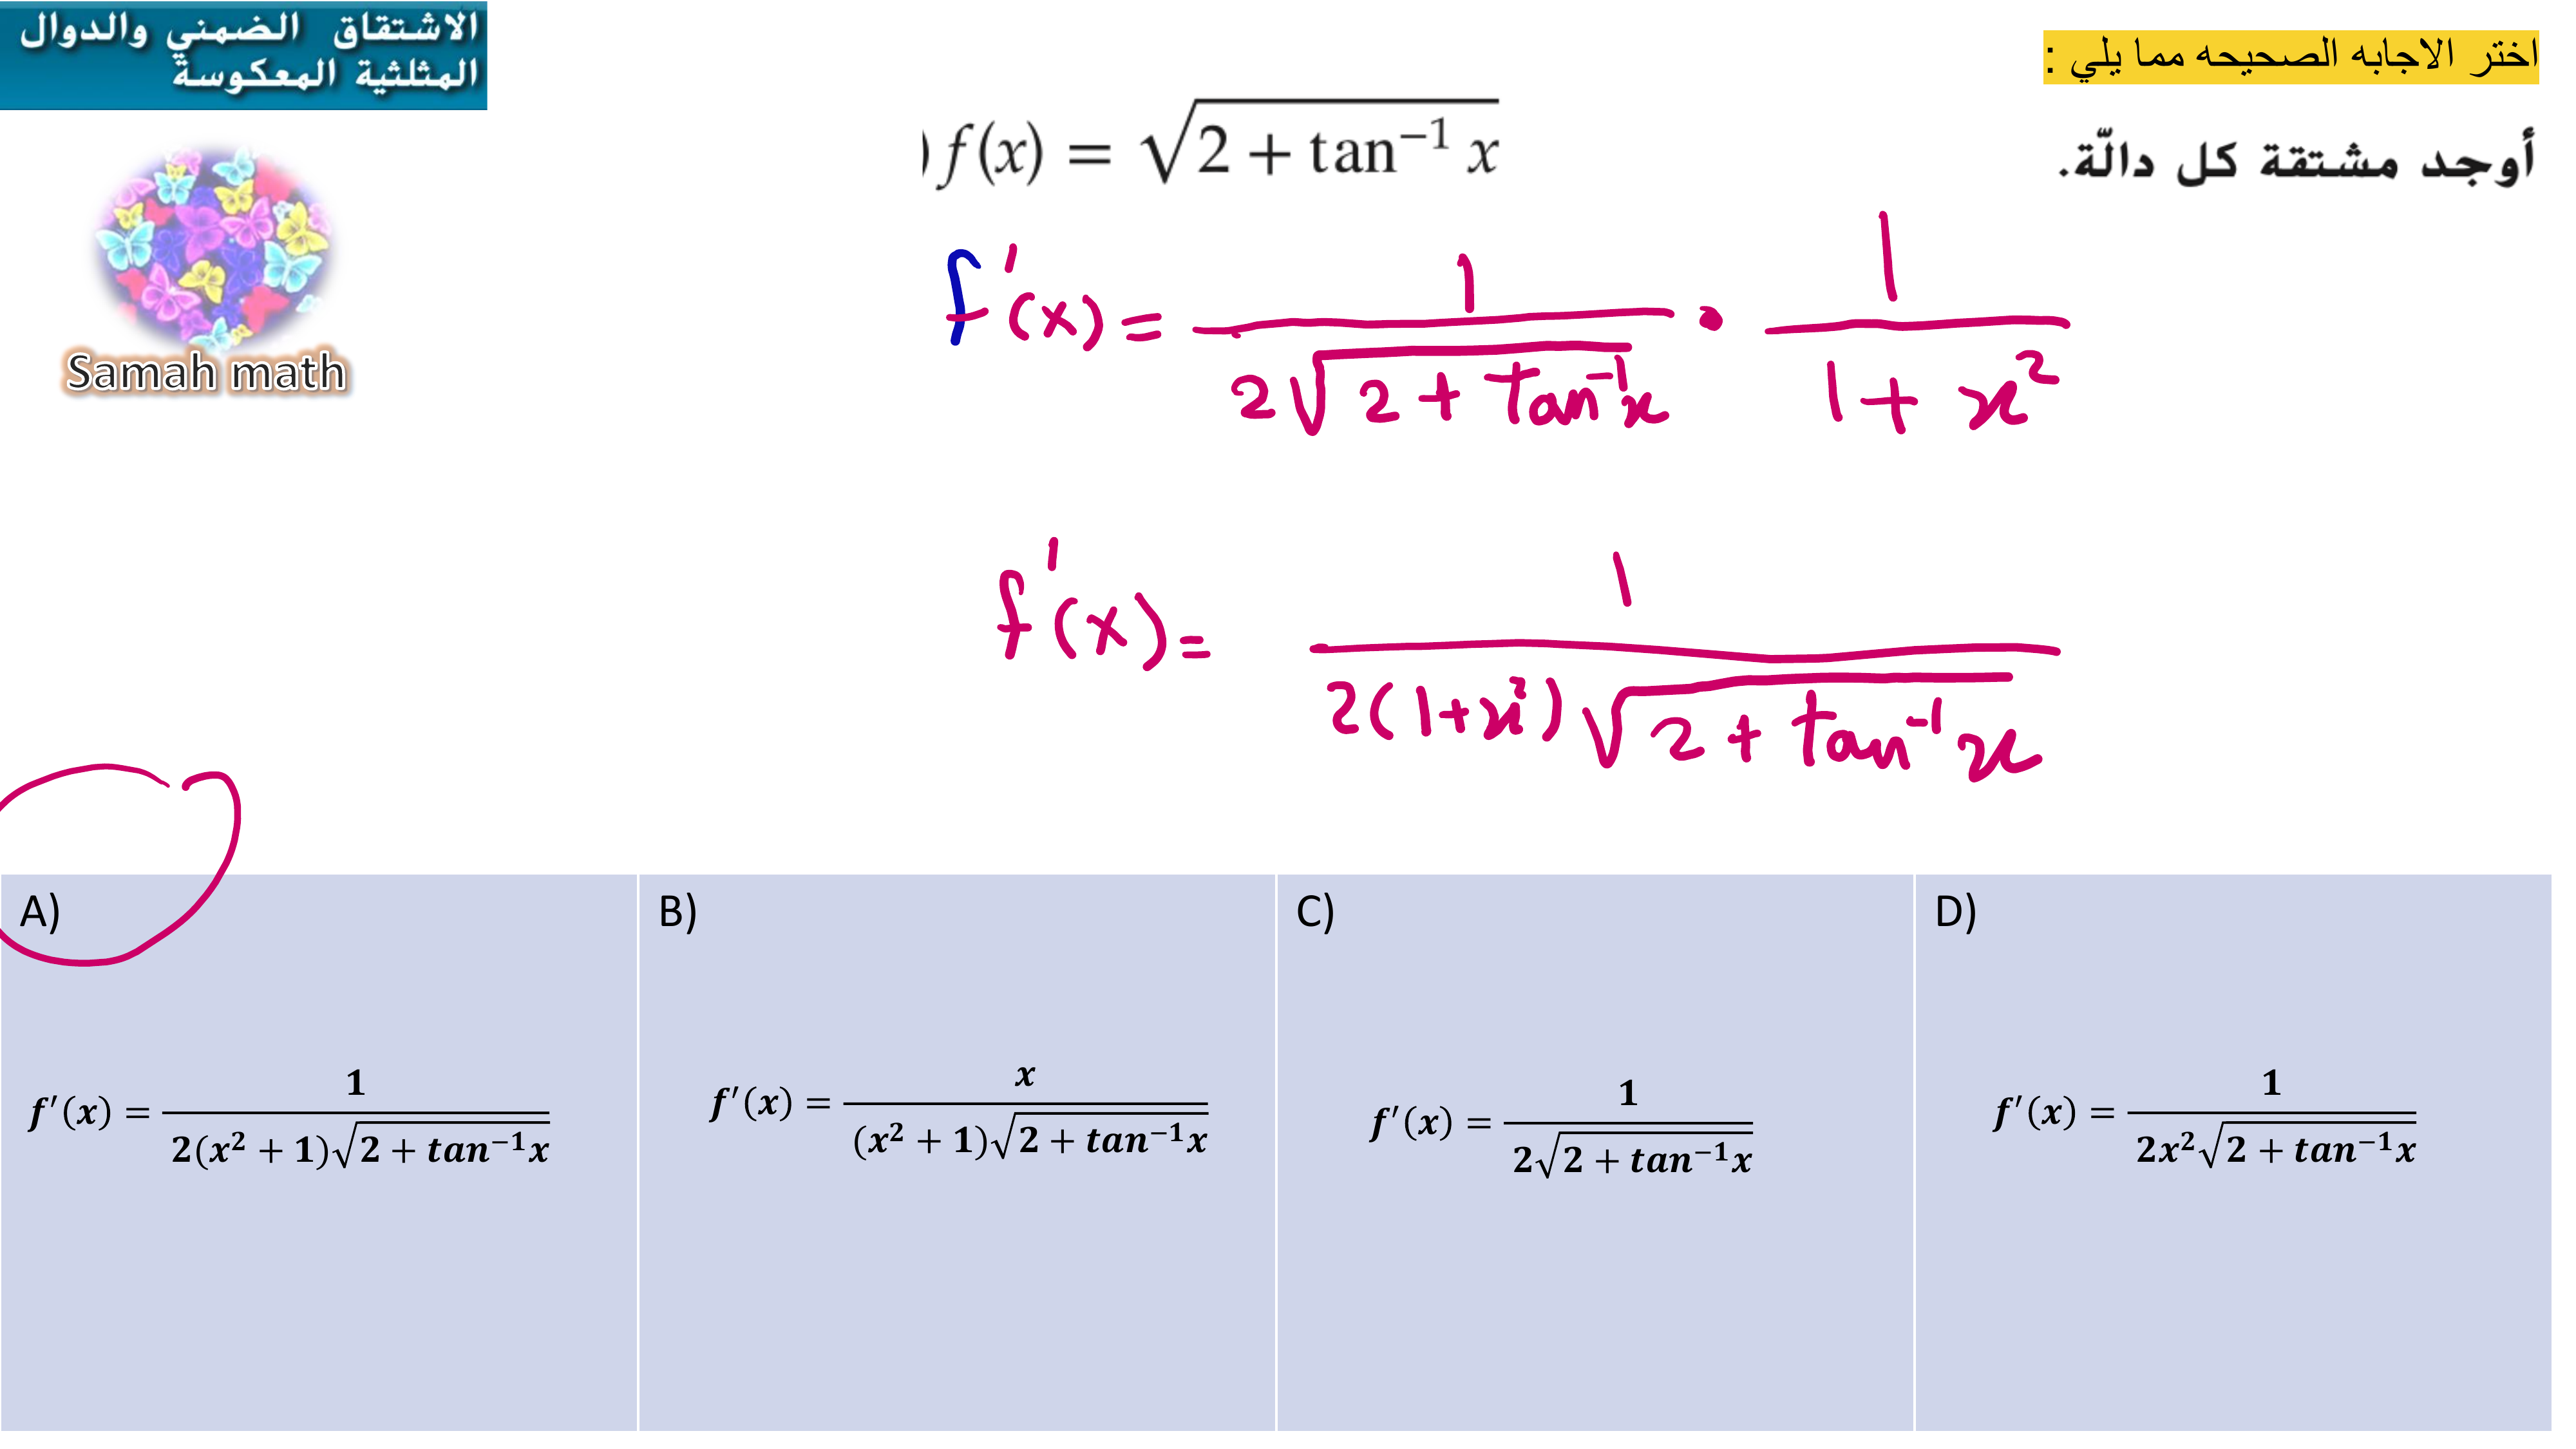 الاشتقاق الضمني والدوال
المثلثية المعكوسة
اختر الاجابه الصحيحه مما يلي :
أوجد مشتقة كل دالّة.
) f(x) = √(2 + tan⁻¹ x)
Samah math
f'(x) = 1/(2√(2 + tan⁻¹x)) • 1/(1 + x²)
f'(x) = 1/(2(1+x²)√(2 + tan⁻¹x))
A)
f′(x) = 1/(2(x² + 1)√(2 + tan⁻¹x))
B)
f′(x) = x/((x² + 1)√(2 + tan⁻¹x))
C)
f′(x) = 1/(2√(2 + tan⁻¹x))
D)
f′(x) = 1/(2x²√(2 + tan⁻¹x))